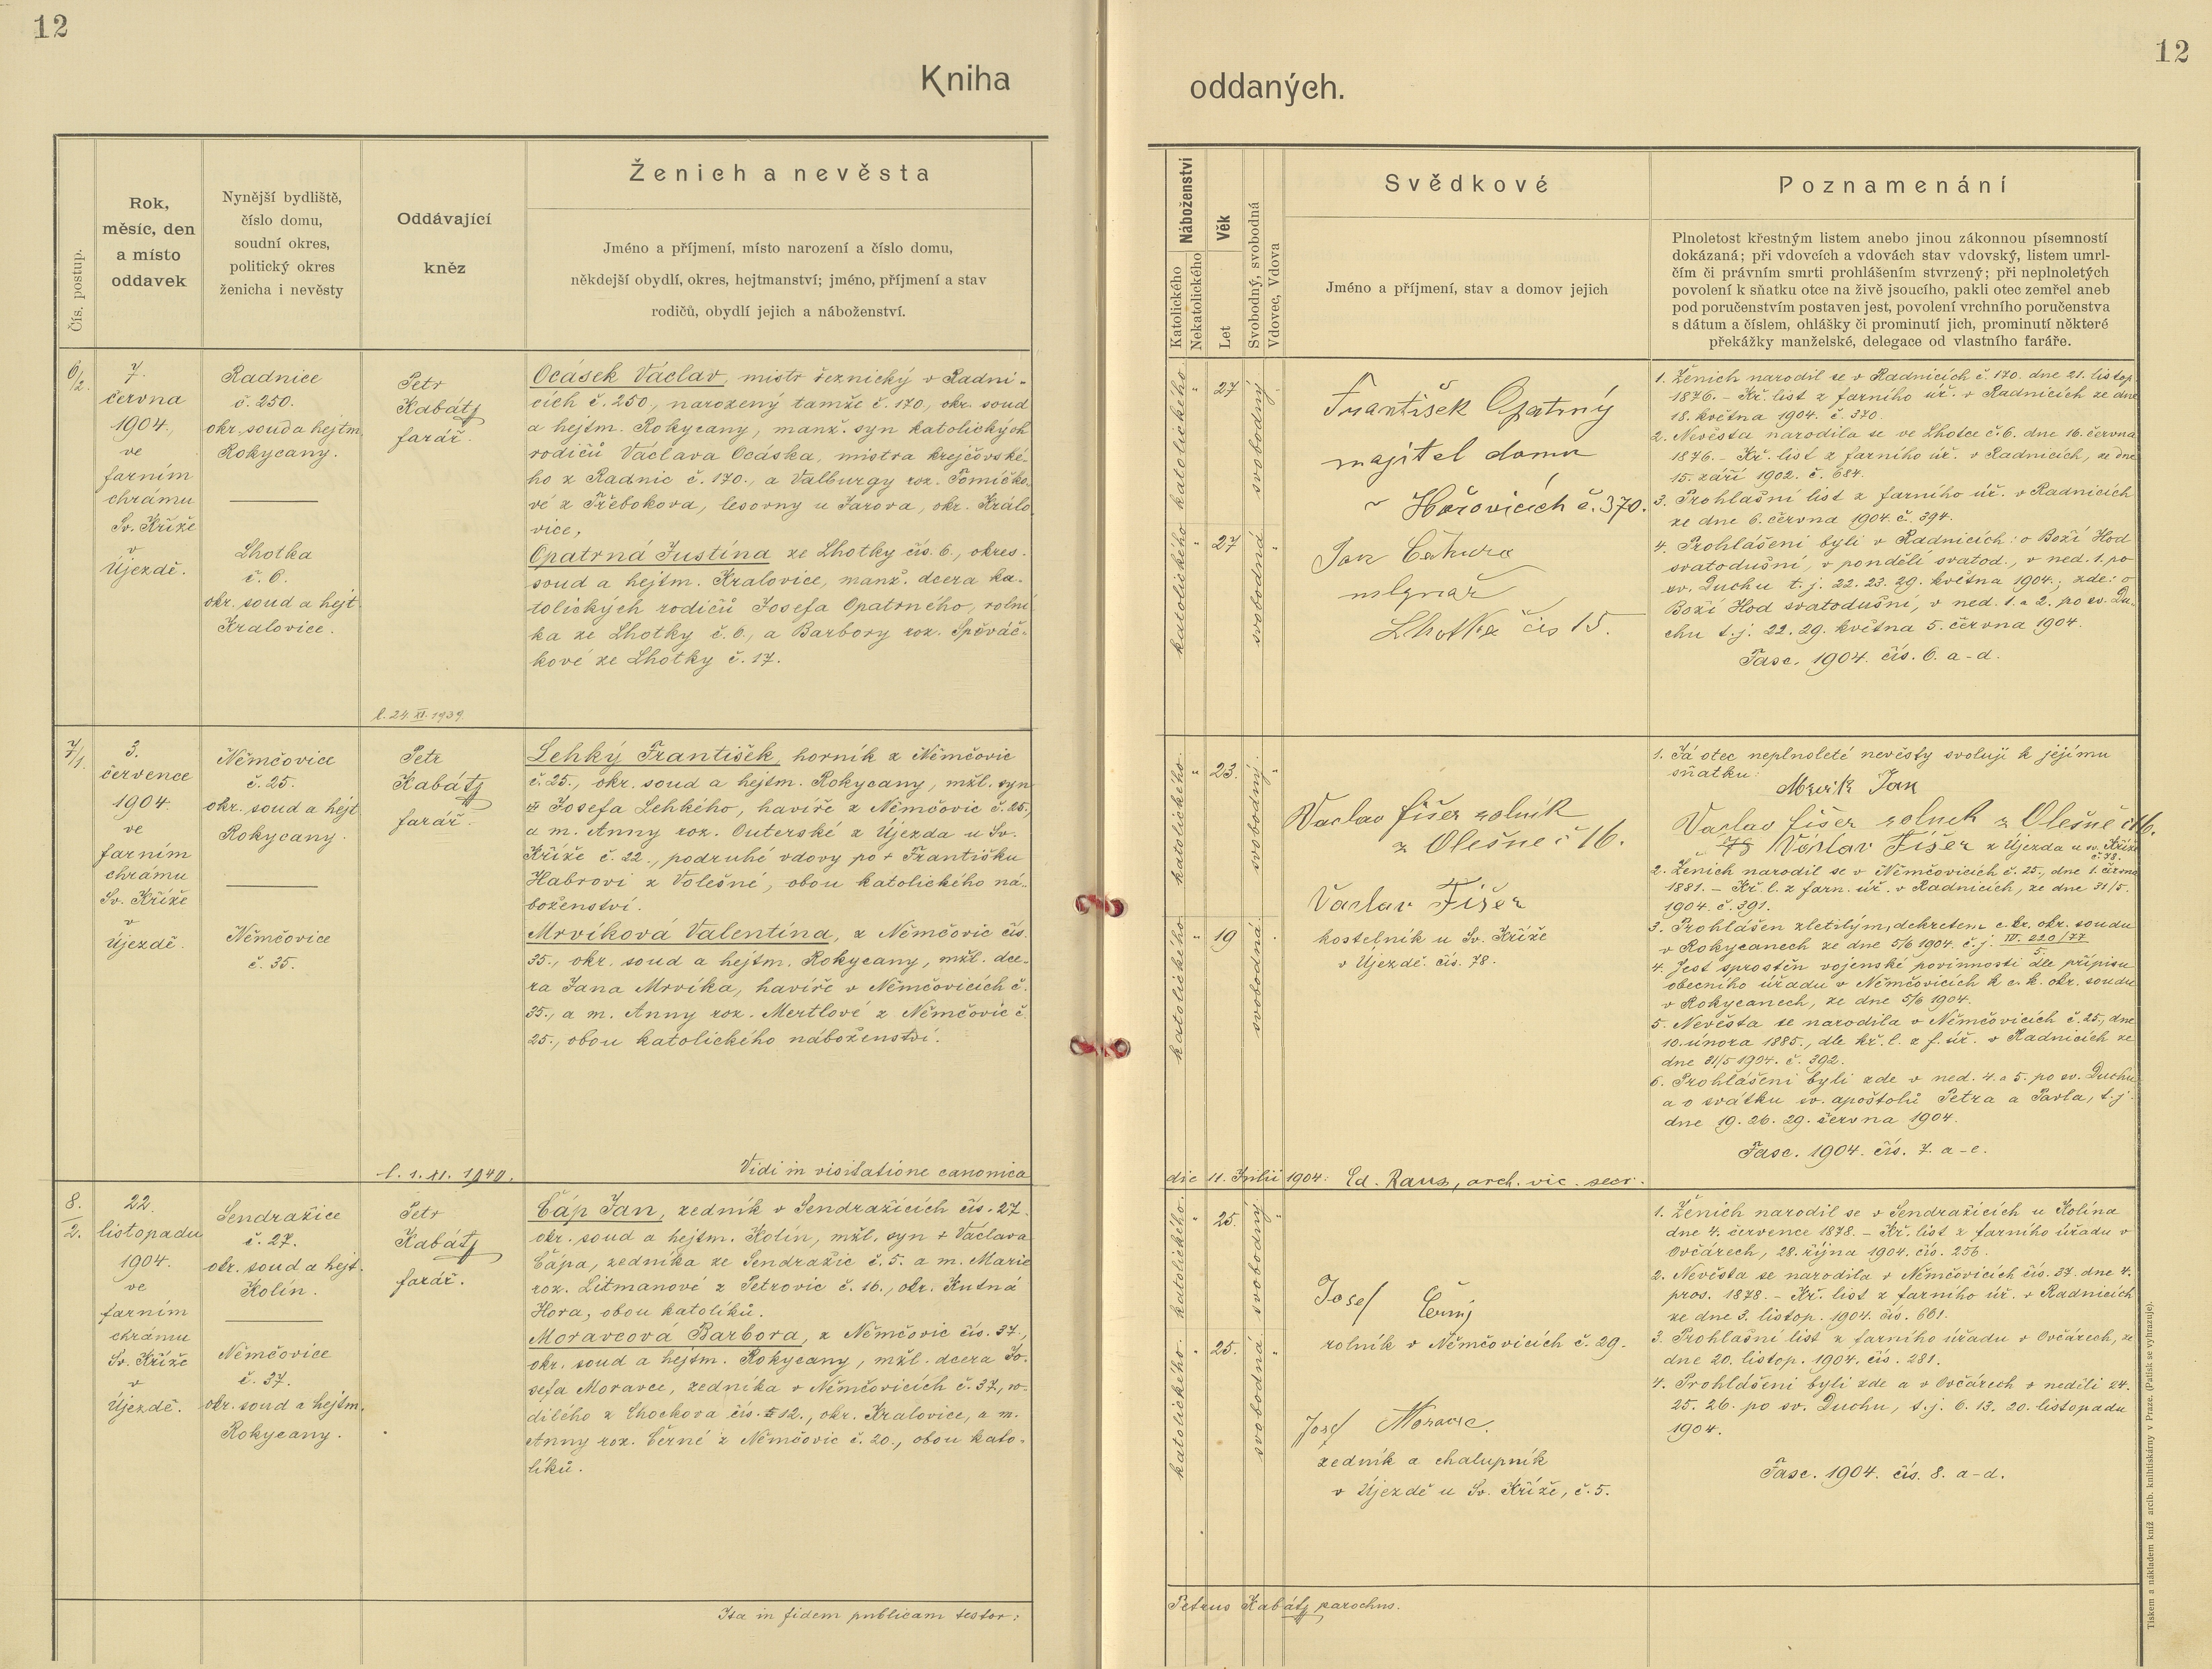 12
12
Kniha
oddaných.
Čís. postup.
Rok,
měsíc, den
a místo
oddavek
Nynější bydliště,
číslo domu,
soudní okres,
politický okres
ženicha i nevěsty
Oddávající
kněz
Ženich a nevěsta
Jméno a příjmení, místo narození a číslo domu,
někdejší obydlí, okres, hejtmanství; jméno, příjmení a stav
rodičů, obydlí jejich a náboženství.
Náboženství
Katolického
Nekatolického
Věk
Let
Svobodný, svobodná
Vdovec, Vdova
Svědkové
Jméno a příjmení, stav a domov jejich
Poznamenání
Plnoletost křestným listem anebo jinou zákonnou písemností
dokázaná; při vdovcích a vdovách stav vdovský, listem umrl-
čím či právním smrti prohlášením stvrzený; při neplnoletých
povolení k sňatku otce na živě jsoucího, pakli otec zemřel aneb
pod poručenstvím postaven jest, povolení vrchního poručenstva
s dátum a číslem, ohlášky či prominutí jich, prominutí některé
překážky manželské, delegace od vlastního faráře.
6/2.
7.
června
1904.
ve
farním
chrámu
Sv. Kříže
v
Újezdě.
Radnice
č. 250.
okr. soud a hejtm.
Rokycany.
Lhotka
č. 6.
okr. soud a hejt.
Kralovice.
Petr
Kabátj
farář.
l. 24. XI. 1939.
Ocásek Václav, mistr řeznický v Radni-
cích č. 250, narozený tamže č. 170, okr. soud
a hejtm. Rokycany, manž. syn katolických
rodičů Václava Ocáska, mistra krejčovské-
ho z Radnic č. 170., a Valburgy roz. Tomíčko-
vé z Třebokova, lesovny u Jarova, okr. Králo
vice,
Opatrná Justina ze Lhotky čís. 6., okres.
soud a hejtm. Kralovice, manž. dcera ka-
tolických rodičů Josefa Opatrného, rolní
ka ze Lhotky č. 6., a Barbory roz. Spěváč-
kové ze Lhotky č. 17.
katolického
27
svobodný
katolického
27
svobodná
František Opatrný
majitel domu
v Hořovicích č. 370.
Jan
mlynář
Lhotka čís 15.
1. Ženich narodil se v Radnicích č. 170. dne 21. listop.
1876. - Kř. list z farního úř. v Radnicích ze dne
18. května 1904. č. 370.
2. Nevěsta narodila se ve Lhotce č. 6. dne 16. června
1876. - Kř. list z farního úř. v Radnicích, ze dne
15. září 1902. č. 684.
3. Prohlašní list z farního úř. v Radnicích
ze dne 6. června 1904. č. 394.
4. Prohlášeni byli v Radnicích: o Boží Hod
svatodušní, v pondělí svatod., v ned. 1. po
sv. Duchu t. j. 22. 23. 29. května 1904.; zde: o
Boží Hod svatodušní, v ned. 1. a 2. po sv. Du-
chu t. j. 22. 29. května 5. června 1904.
Fasc. 1904. čís. 6. a-d.
7/1.
3.
července
1904.
ve
farním
chrámu
Sv. Kříže
v
Újezdě.
Němčovice
č. 25.
okr. soud a hejt.
Rokycany.
Němčovice
č. 35.
Petr
Kabátj
farář.
l. 1. XI. 1940.
Lehký František, horník z Němčovic
č. 25., okr. soud a hejtm. Rokycany, mžl. syn
Josefa Lehkého, havíře z Němčovic č. 25,
a m. Anny roz. Outerské z Újezda u Sv.
Kříže č. 22., podruhé vdovy po + Františku
Habrovi z Volešné, obou katolického ná-
boženství.
Mrvíková Valentína, z Němčovic čís.
35., okr. soud a hejtm. Rokycany, mžl. dce-
ra Jana Mrvíka, havíře v Němčovicích č.
35., a m. Anny roz. Mertlové z Němčovic č.
25., obou katolického náboženství.
Vidi in visitatione canonica
die 11. Julii 1904: Ed. Raus, arch. vic. secr.
katolického
23.
svobodný
katolického
19
svobodná
Vaclav fišer rolník
z Olešne č 16.
Vaclav Fišer
kostelník u Sv. Kříže
v Újezdě. čís. 78.
1. Já otec neplnoleté nevěsty svoluji k jejímu
sňatku:
Mrvík Jan
Vaclav fišer rolnek z Olešne č 16.
Václav Fišer z Újezda u sv. Kříže
č. 78.
2. Ženich narodil se v Němčovicích č. 25., dne 1. června
1881. - Kř. l. z farn. úř. v Radnicích, ze dne 31/5.
1904. č. 391.
3. Prohlášen zletilým, dekretem c. kr. okr. soudu
v Rokycanech ze dne 5/6 1904. č. j. IV. 220/77
5.
4. Jest sproštěn vojenské povinnosti dle přípisu
obecního úřadu v Němčovicích k c. k. okr. soudu
v Rokycanech, ze dne 5/6 1904.
5. Nevěsta se narodila v Němčovicích č. 25., dne
10. února 1885., dle kř. l. z f. úř. v Radnicích ze
dne 31/5 1904. č. 392.
6. Prohlášeni byli zde v ned. 4. a 5. po sv. Duchu
a o svátku sv. apoštolů Petra a Pavla, t. j.
dne 19. 26. 29. června 1904.
Fasc. 1904. čís. 7. a-e.
8.
2.
22.
listopadu
1904.
ve
farním
chrámu
Sv. Kříže
v
Újezdě.
Sendražice
č. 27.
okr. soud a hejt.
Kolín.
Němčovice
č. 37.
okr. soud a hejtm.
Rokycany.
Petr
Kabátj
farář.
Čáp Jan, zedník v Sendražicích čís. 27.
okr. soud a hejtm. Kolín, mžl. syn + Václava
Čápa, zedníka ze Sendražic č. 5. a m. Marie
roz. Litmanové z Petrovic č. 16., okr. Kutná
Hora, obou katolíků.
Moravcová Barbora, z Němčovic čís. 37.,
okr. soud a hejtm. Rokycany, mžl. dcera Jo-
sefa Moravce, zedníka v Němčovicích č. 37, ro-
dilého z Chockova čís. 12., okr. Kralovice, a m.
Anny roz. Černé z Němčovic č. 20., obou kato-
líků.
katolického
25.
svobodný
katolického
25.
svobodná
Josef Černý
rolník v Němčovicích č. 29.
Josef Moravec
zedník a chalupník
v Újezdě u Sv. Kříže, č. 5.
1. Ženich narodil se v Sendražicích u Kolína
dne 4. července 1878. - Kř. list z farního úřadu v
Ovčárech, 28. října 1904. čís. 256.
2. Nevěsta se narodila v Němčovicích čís. 37. dne 4.
pros. 1878. - Kř. list z farního úř. v Radnicích
ze dne 3. listop. 1904. čís. 661.
3. Prohlašní list z farního úřadu v Ovčárech, ze
dne 20. listop. 1904. čís. 281.
4. Prohlášeni byli zde a v Ovčárech v neděli 24.
25. 26. po sv. Duchu, t. j. 6. 13. 20. listopadu
1904.
Fasc. 1904. čís. 8. a-d.
Ita in fidem publicam testor:
Petrus Kabátj parochus.
Tiskem a nákladem kníž. arcib. knihtiskárny v Praze. (Patisk se vyhrazuje).